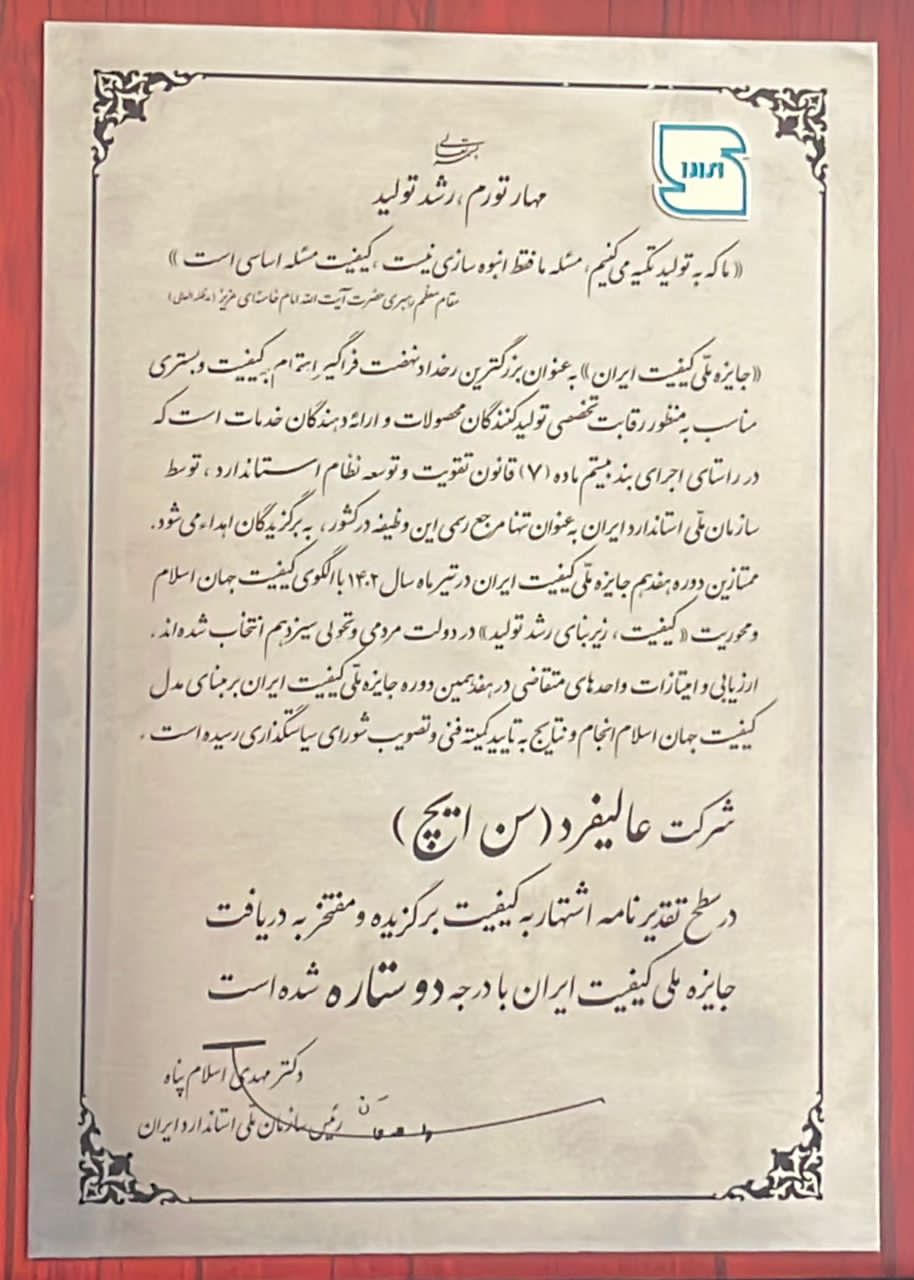 بسمه تعالی
مهار تورم، رشد تولید
«ما که به تولید تکیه می‌کنیم، مسئله ما فقط انبوه سازی نیست، کیفیت مسئله اساسی است»
مقام معظم رهبری حضرت آیت الله امام خامنه‌ای عزیز (مدظله العالی)
«جایزه ملّی کیفیت ایران» به عنوان بزرگترین رخداد نهضت فراگیر اهتمام به کیفیت و بستری
مناسب به منظور رقابت تخصصی تولیدکنندگان محصولات و ارائه دهندگان خدمات است که
در راستای اجرای بند بیستم ماده (۷) قانون تقویت و توسعه نظام استاندارد، توسط
سازمان ملّی استاندارد ایران به عنوان تنها مرجع رسمی این وظیفه در کشور، به برگزیدگان اهداء می‌شود.
ممتازین دوره هفدهم جایزه ملّی کیفیت ایران در تیر ماه سال ۱۴۰۲ با الگوی کیفیت جهان اسلام
و محوریت «کیفیت، زیربنای رشد تولید» در دولت مردمی و تحولی سیزدهم انتخاب شده‌اند.
ارزیابی و امتیازات واحدهای متقاضی در هفدهمین دوره جایزه ملّی کیفیت ایران بر مبنای مدل
کیفیت جهان اسلام انجام و نتایج به تایید کمیته فنی و تصویب شورای سیاستگذاری رسیده است.
شرکت عالیفرد (سن ایچ)
در سطح تقدیرنامه اشتهار به کیفیت برگزیده و مفتخر به دریافت
جایزه ملی کیفیت ایران با درجه دو ستاره شده است
دکتر مهدی اسلام پناه
رئیس سازمان ملی استاندارد ایران